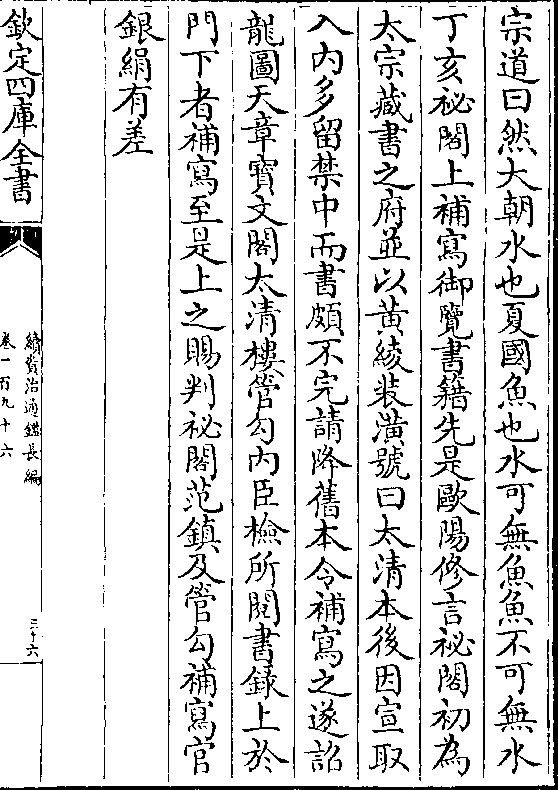 宗道曰然大朝水也夏國魚也水可無魚魚不可無水
丁亥祕閣上補寫御覽書籍先是歐陽修言祕閣初為
太宗藏書之府並以黃綾裝潢號曰太清本後因宣取
入內多留禁中而書頗不完請降舊本令補寫之遂詔
龍圖天章寶文閣太清樓管勾內臣檢所閱書錄上於
門下者補寫至是上之賜判祕閣范鎮及管勾補寫官
銀絹有差
欽定四庫全書
續資治通鑑長編
卷一百九十六
三十六